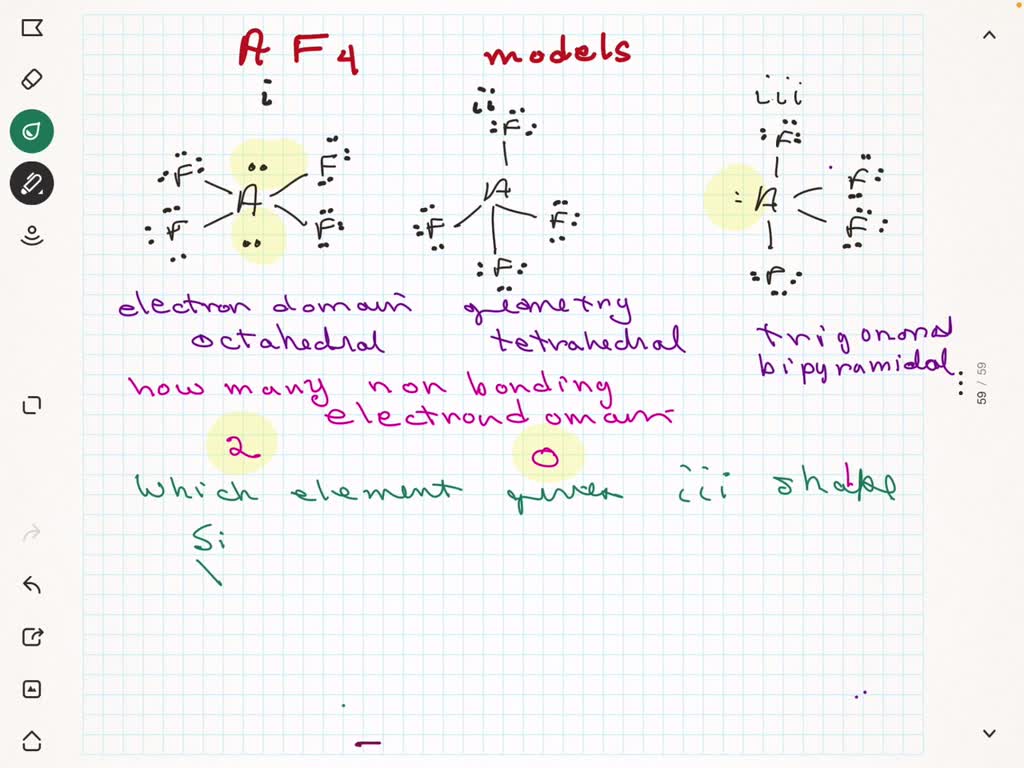 AF4 models
i ii iii
:F: :F:
F A F A F
F F F F F
F F
electron domain geometry
octahedral tetrahedral trigononal
bipyramidal
how many non bonding
electron domain
2 0 1
Which element gives iii shape
Si
59 / 59